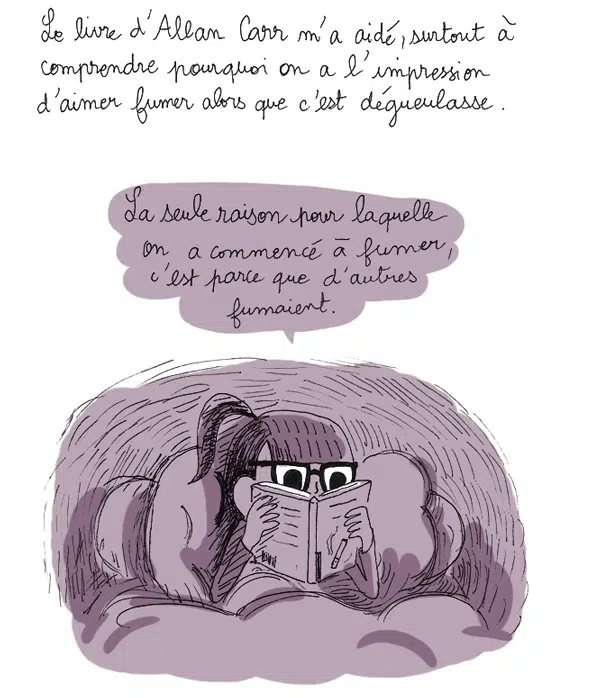 Le livre d'Allan Carr m'a aidé, surtout à
comprendre pourquoi on a l'impression
d'aimer fumer alors que c'est dégueulasse.
La seule raison pour laquelle
on a commencé à fumer,
c'est parce que d'autres
fumaient.